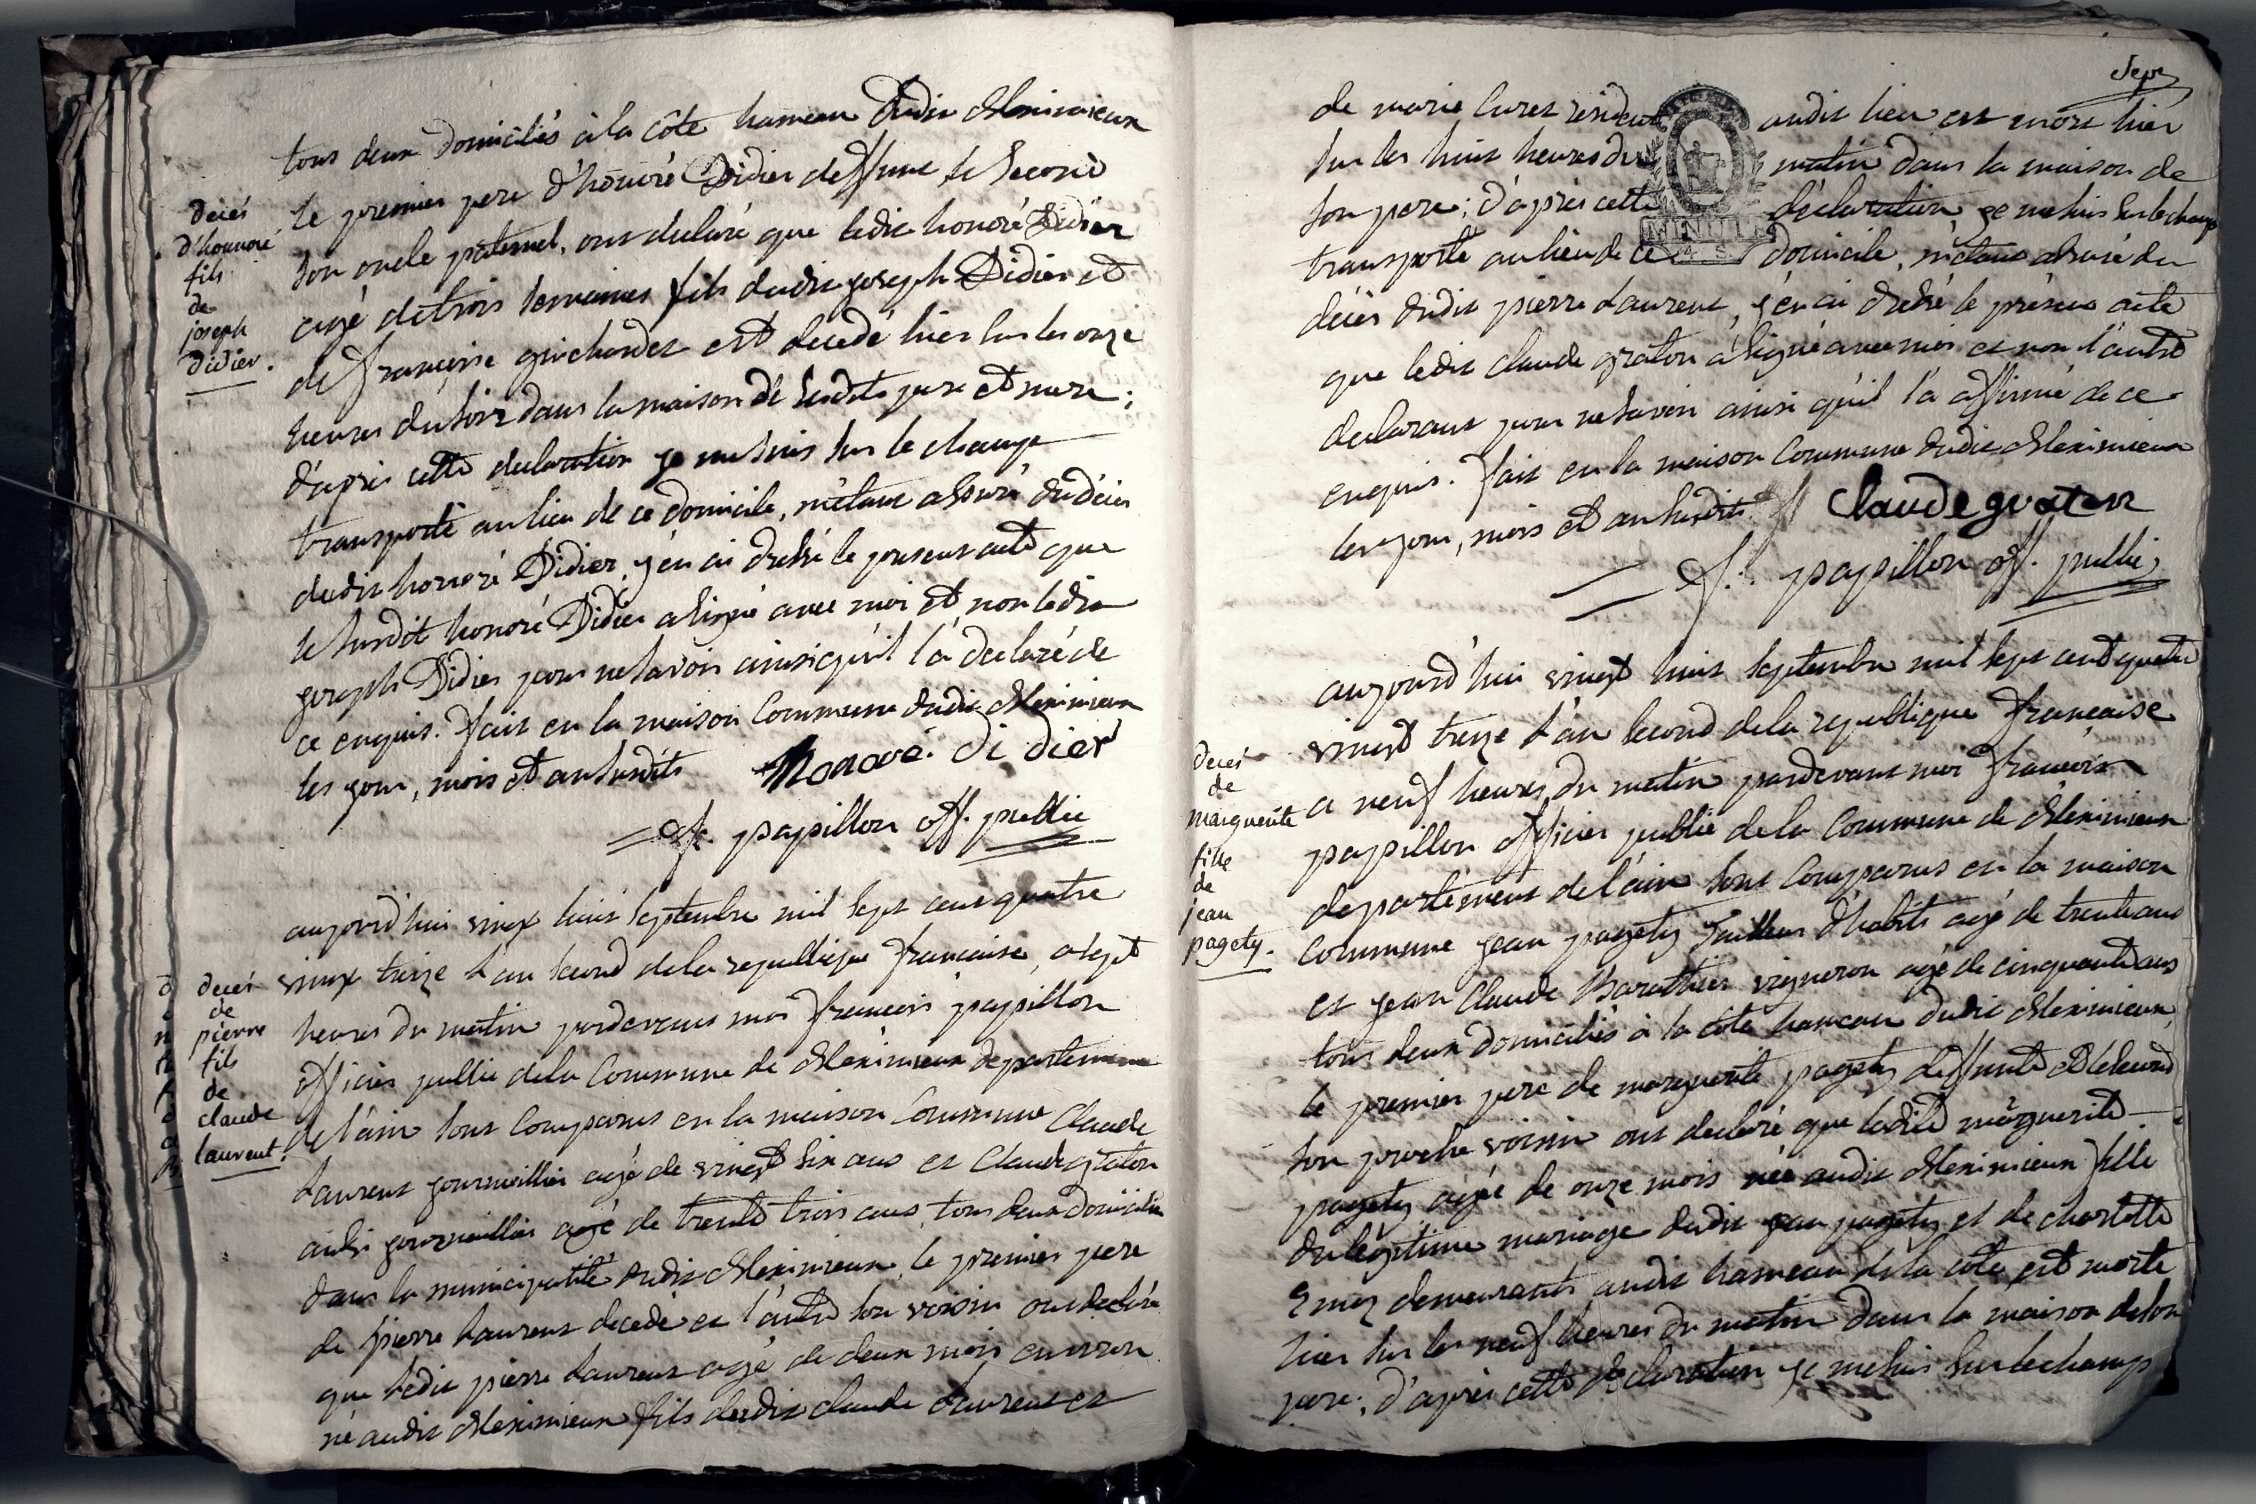 tous deux domiciliés à la côte hameau dudit Meximieux
le premier pere d'honoré Didier deffunt le second
son oncle paternel, ont declaré que ledit honoré Didier
agé de trois semaines fils dudit joseph Didier et
de françoise guichardet est decedé hier sur les onze
heures du soir dans la maison de sesdits pere et mere ;
d'après cette declaration je me suis sur le champ
transporté au lieu de ce domicile, m'étant assuré du décès
dudit honoré Didier, j'en ai dressé le present acte que
le susdit honoré Didier a signé avec moi et non ledit
joseph Didier pour ne savoir ainsi qu'il l'a declaré de
ce enquis. fait en la maison Commune dudit Meximieux
les jour, mois et an susdits honoré didier
f. papillon off. public
decés
d'honnoré
fils
de
joseph
didier.
aujourd'hui vingt huit septembre mil sept cent quatre
vingt treize l'an second de la republique francaise, a sept
heures du matin pardevant moi francois papillon
officier public de la Commune de Meximieux departement
de l'ain sont Comparus en la maison Commune Claude
Laurent journaillier agé de vingt six ans et Claude graton
aussi journaillier agé de trente trois ans, tous deux domiciliés
dans la municipalité dudit Meximieux, le premier pere
de pierre Laurent decedé et l'autre son voisin ont declaré
que ledit pierre Laurent agé de deux mois environ
né audit Meximieux fils dudit claude Laurent et
decés
de
pierre
fils
de
claude
laurent.
sept
de marie Curet résident audit lieu est mort hier
sur les huit heures du matin dans la maison de
son pere ; d'après cette déclaration je me suis sur le champ
transporté au lieu de ce domicile, m'étant assuré du
décès dudit pierre Laurent, j'en ai dressé le présent acte
que ledit claude graton a signé avec moi et non l'autre
declarant pour ne savoir ainsi qu'il l'a affirmé de ce
enquis. fait en la maison Commune dudit Meximieux
les jour, mois et an susdits Claude graton
f. papillon off. public
aujourd'hui vingt huit septembre mil sept cent quatre
vingt treize l'an second de la republique francaise
a neuf heures du matin pardevant moi francois
papillon officier public de la Commune de Meximieux
departement de l'ain sont Comparus en la maison
Commune jean pagety tailleur d'habits agé de trente ans
et jean Claude Baratthier vigneron agé de cinquante ans
tous deux domiciliés à la côte hameau dudit Meximieux,
le premier pere de marguerite pagety deffunte et le second
son proche voisin ont declaré que ladite marguerite
pagety agée de onze mois née audit Meximieux fille
du légitime mariage dudit jean pagety et de charlotte
demeurants audit hameau de la côte est morte
hier sur les neuf heures du matin dans la maison de son
pere ; d'après cette déclaration je me suis sur le champ
decés
de
marguerite
fille
de
jean
pagety.